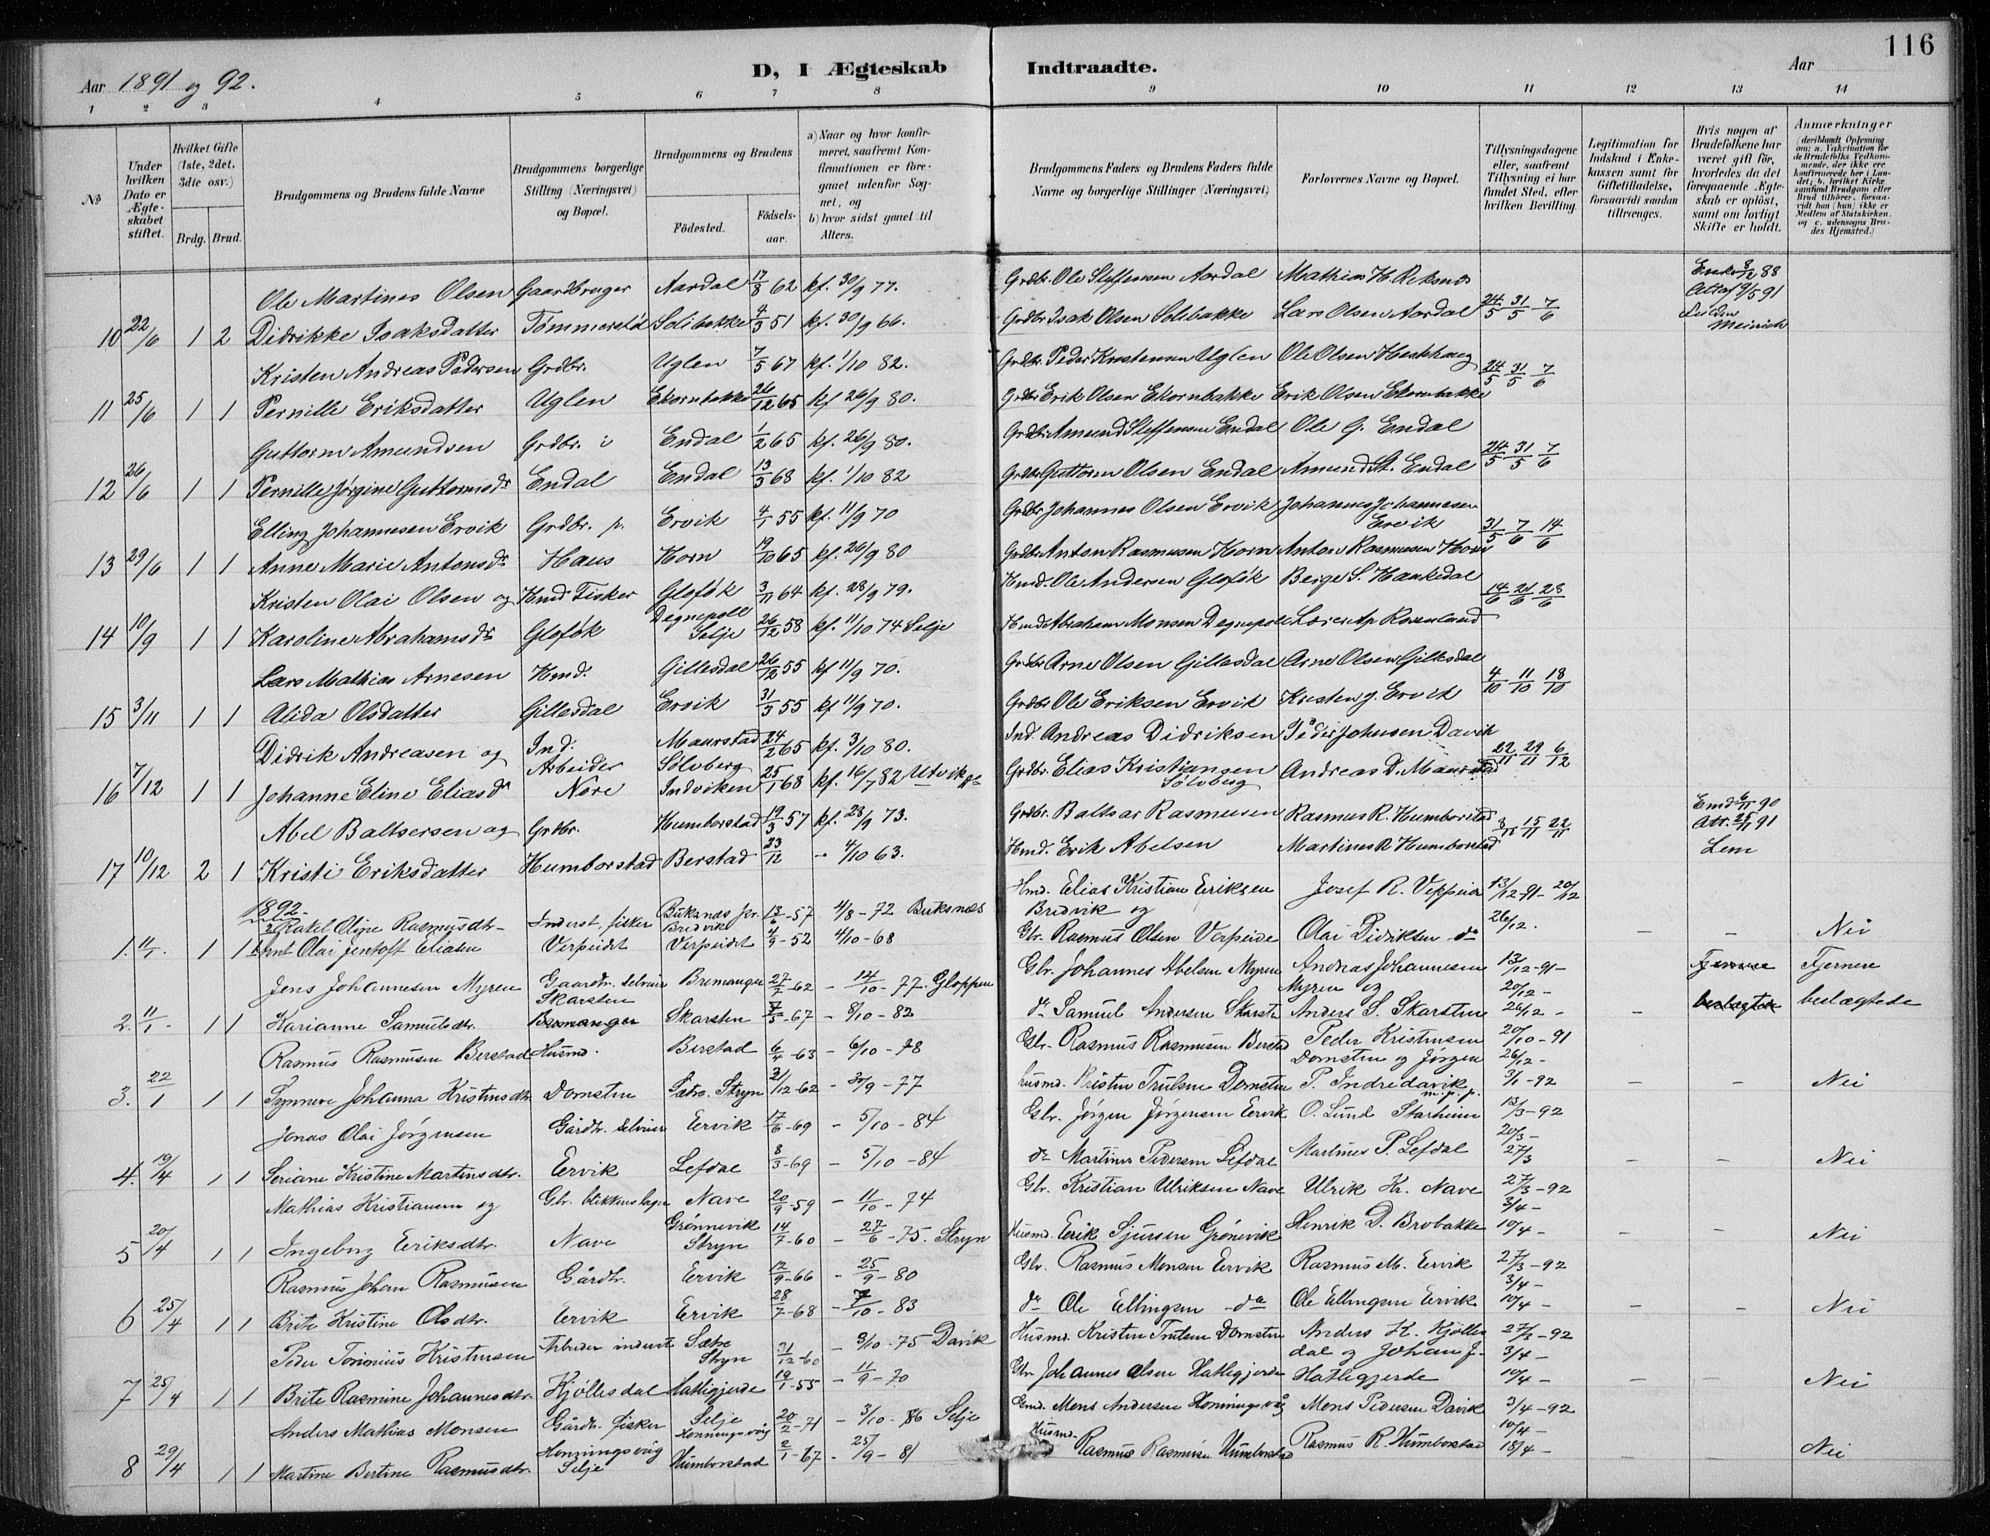 116
Aar 1891 og 92.
D, I Ægteskab
Indtraadte.
Aar
1 2 3 4 5 6 7 8 9 10 11 12 13 14
No.
Under hvilken Dato er Ægteskabet stiftet.
Hvilket Gifte (1ste, 2det, 3die osv.)
Brdg. Brud.
Brudgommens og Brudens fulde Navne
Brudgommens borgerlige Stilling (Næringsvei) og Bopæl.
Brudgommens og Brudens
Födested.
Födselsaar.
a) Naar og hvor konfirmeret, saafremt Konfirmationen er foregaaet udenfor Sognet, og
b) hvor sidst gaaet til Alters.
Brudgommens Faders og Brudens Faders fulde Navne og borgerlige Stillinger (Næringsvei)
Forlovernes Navne og Bopæl.
Tillysningsdagene eller, saafremt Tillysning ei har fundet Sted, efter hvilken Bevilling.
Legitimation for Indskud i Enkekassen samt for Giftetilladelse, forsaavidt saadan tiltrænges.
Hvis nogen af Brudefolkene har været gift för, hvorledes da det foregaaende Ægteskab er oplöst, samt om lovligt Skifte er holdt.
Anmærkninger
(deriblandt Oplysning om: a. Vakcination for de Brudefolks Vedkommende, der ikke ere konfirmerede her i Landet; b. hvilket Kirkesamfund Brudgom eller Brud tilhörer, forsaavidt han (hun) ikke er Medlem af Statskirken, og c. udensogns Brudes Hjemsted.)
Ole Martines Olsen Gaardbruger Aardal 17/8 62 kf. 30/9 77. Grdbr Ole Steffensen Aardal Mathias H. Reksnes
10 22/6 1 2 Didrikke Isaksdatter Tømmerstø Solibakke 4/3 51 kf. 30/9 66. Grdbr Isak Olsen Solibakke Lars Olsen Aardal 24/5 31/5 7/6
Kristen Andreas Pedersen Grdbr. Uglen 7/5 67 kf. 1/10 82. Grdbr Peder Kristensen Uglen Ole Olsen Hesthaug
11 25/6 1 1 Pernille Eriksdatter Uglen Ekornbakke 26/12 65 kf 26/9 80. Grdbr Erik Olsen Ekornbakke Erik Olsen Ekornbakke 24/5 31/5 7/6
Guttorm Amundsen Grdbr. i Endal 1/2 65 kf. 26/9 80. Grdbr Amund Steffensen Endal Ole G. Endal
12 26/6 1 1 Pernille Jørgine Guttormsdr Endal Endal 13/3 68 kf. 1/10 82 Grdbr Guttorm Olsen Endal Amund St. Endal 24/5 31/5 7/6
Elling Johannesen Ervik Grdbr. p. Ervik 4/1 55 kf. 11/9 70 Grdbr Johannes Olsen Ervik Johannes Johannesen Ervik
13 29/6 1 1 Anne Marie Antonsdr Haus Horn 19/10 65 kf. 26/9 80 Grdbr Anton Rasmussen Horn Anton Rasmussen Horn 31/5 7/6 14/6
Kristen Olai Olsen og Hmd Fisker Gloføk 3/11 64 kf. 28/9 79. Hmd. Ole Andersen Gloføk Berge S. Haukedal
14 10/9 1 1 Karoline Abrahamsdr Gloføk Degnepoll Selje 26/12 58 kf. 11/10 74 Selje Hmd Abraham Monsen Degnepoll Lærer Ap Rosenland 14/6 21/6 28/6
Lars Mathias Arnesen Hmd. Gillesdal 26/12 55 kf 11/9 70. Grdbr Arne Olsen Gillesdal Arne Olsen Gillesdal
15 3/11 1 1 Alida Olsdatter Gillesdal Ervik 31/3 55 kf 11/9 70. Grdbr Ole Eriksen Ervik Kristen J. Ervik 4/10 11/10 18/10
Didrik Andreasen og Ind. Arbeider Maurstad 24/2 65 kf. 3/10 80. Ind. Andreas Didriksen Peder Johnsen Davik
16 7/12 1 1 Johanne Eline Eliasdr Nore Sølvberg Indviken 25/1 68 kf. 16/7 82 Utvik Grdbr. Elias Kristiansen Sølvberg Andreas D. Maurstad 22/11 29/11 6/12
Abel Baltsersen og Grdbr. Humborstad 19/3 57 kf. 28/9 73. Grdbr. Baltsar Rasmusen Rasmus R. Humborstad
17 10/12 2 1 Kristi Eriksdatter Humborstad Berstad 23/12 4/10 63. Hmd. Erik Abelsen Martines R Humborstad 8/11 15/11 22/11 Lem
1892
Ratel Oline Rasmusdtr Inderst. fisker Buksnes Bredvik 13/6-57 4/8-72 Buksnes Hmd. Elias Kristian Eriksen Bredvik og Josef R. Veppeide 13/12-91- 20/12
1. 11/1 1 1 Olai Jentoft Eliasen Verpeidet Verpeidet 4/9-52 4/10-68 Gbr. Rasmus Olsen Verpeide Olai Didriksen do 26/12. Nei
Jens Johannesen Myren Gaardbr. Skarsten Bremanger 27/7-62 14/10-77. Gloppen Gbr. Johannes Abelsen Myren Andreas Johannesen Myren og 13/12-91- 20/12- Fjernere
2. 11/1 1 1 Karianne Samuelsdtr. Bremanger Skarsten 7/5-67 8/10-82 do Samuel Andersen Skarsten Anders S. Skarsten 26/12- beslægtede
Rasmus Rasmusen Berstad Husmd. Berstad 6/4-63 6/10-78 Gbr. Rasmus Rasmusen Berstad Peder Kristensen Domsten og Jørgen 20/10-91 26/12-
3. 22/1 1 1 Synneve Johanna Kristensdtr. Domsten Sætre. Stryn 21/12-62 30/9-77 Husmd. Kristen Trulsen Domsten P. Indredavik m.p.p. 3/1-92 Nei
Jonas Olai Jørgensen Gårdbr. selveier Eervik 17/6-69 5/10-84 Gbr. Jørgen Jørgensen Eervik O. Lund Starheim 13/3-92 20/3-
4. 19/4 1 1 Seriane Kristine Martinsdtr. Eervik Lefdal 8/3-69 5/10-84 do Martinus Pedersen Lefdal Martinus P. Lefdal 27/3 Nei
Mathias Kristiansen og Gbr. blikkenslager Nave 20/9-59 11/10-74 Gbr. Kristian Ulriksen Nave Ulrik Kr. Nave 27/3-92 3/4-
5 20/4 1 1 Ingeborg Eeriksdtr. Nave Grønnevik Stryn 14/7-60 27/6-75. Stryn Husmd. Eerik Sjursen Grønevik Henrik D. Brobakke 10/4- Nei
Rasmus Johan Rasmusen Gårdbr. Eervik 12/9-66 25/9-80 Gbr. Rasmus Monsen Eervik Rasmus M. Eervik 27/3-92 3/4-
6 25/4 1 1 Brite Kristine Olsdtr. Eervik Eervik 28/7-68 7/10-83 do Ole Ellingsen do Ole Ellingsen Eervik 10/4- Nei
Peder Kristensen Arbeider inderst Sætre Stryn 21/12-60 9/10-75 Davik Husmd. Kristen Trulsen Domsten Anders K. Kjøllesdal og Johan J. 27/3-92 3/4-
7 25/4 1 1 Brite Rasmine Johannesdtr. Kjøllesdal Hatlegjerde 19/1-55 11/9-70 Gbr. Johannes Olsen Hatlegjerde Hatlegjerde 10/4- Nei
Anders Mathias Monsen Gårdbr. fisker Selje Honningsvåg 20/2-71 3/10-86 Selje Gmd. Mons Andersen Honningsvåg Mons Pedersen Davik 3/4-92 10/4-
8 29/4 1 1 Martine Bertine Rasmusdtr. Honningsvåg Selje Humborstad 2/1-67 25/9-81 Husmd. Rasmus Rasmusen Humborstad Rasmus R. Humborstad 18/4- Nei